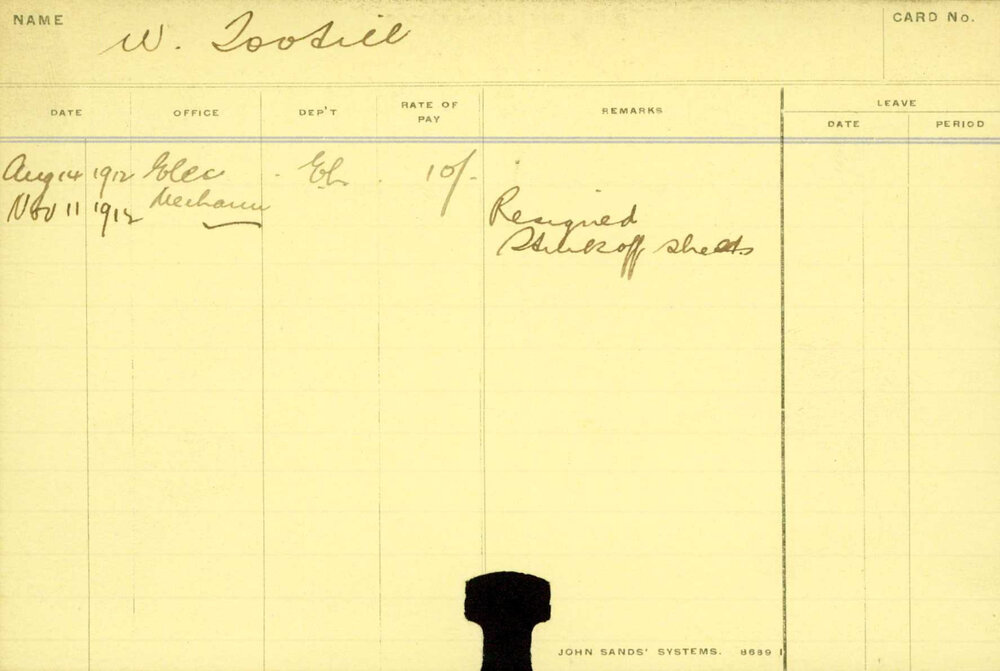 NAME
W. Tootill
CARD No.
DATE
OFFICE
DEP'T
RATE OF PAY
REMARKS
LEAVE
DATE
PERIOD
Aug 14 1912 Elec 10/-
Mechanic
Nov 11 1912
Resigned
Struck off sheets
JOHN SANDS' SYSTEMS. 8689